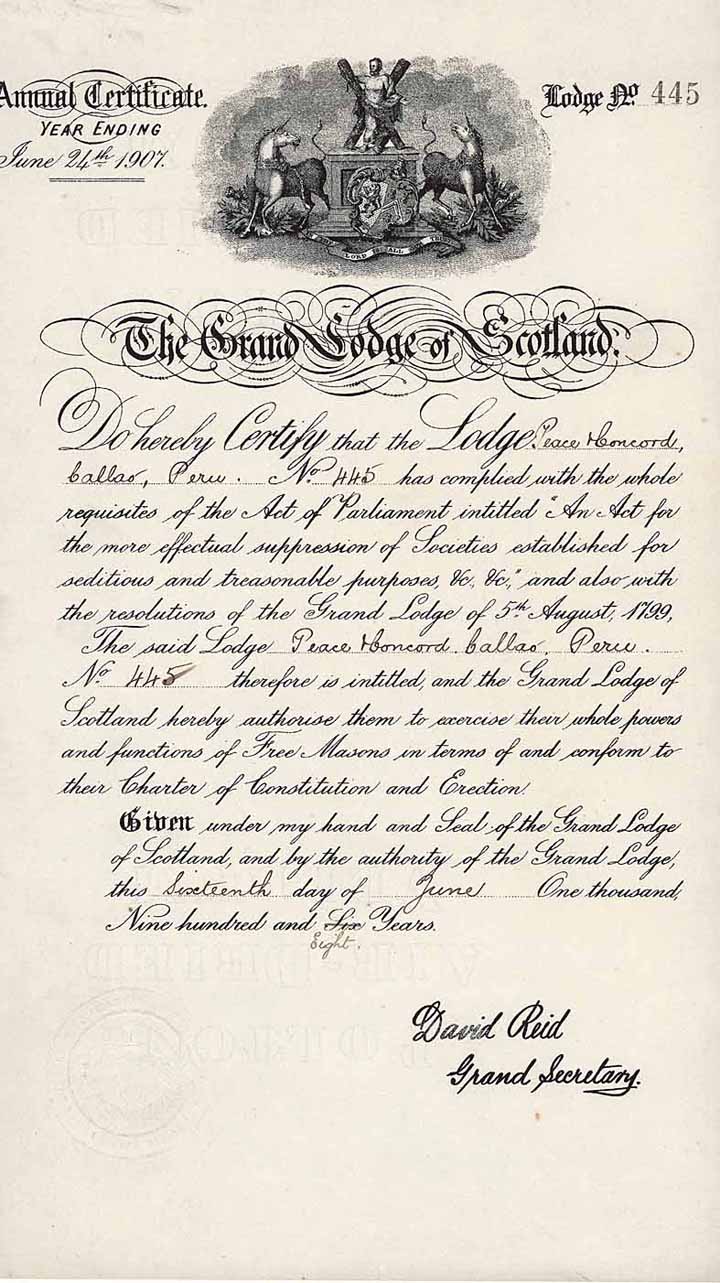 Annual Certificate.
YEAR ENDING
June 24th 1907.
Lodge No 445
LORD IS ALL
The Grand Lodge of Scotland.
Do hereby Certify that the Lodge Peace & Concord,
Callao, Peru. No 445 has complied with the whole
requisites of the Act of Parliament intitled "An Act for
the more effectual suppression of Societies established for
seditious and treasonable purposes, &c, &c," and also with
the resolutions of the Grand Lodge of 5th August, 1799,
The said Lodge Peace & Concord. Callao, Peru.
No 445 therefore is intitled, and the Grand Lodge of
Scotland hereby authorise them to exercise their whole powers
and functions of Free Masons in terms of and conform to
their Charter of Constitution and Erection.
Given under my hand and Seal of the Grand Lodge
of Scotland, and by the authority of the Grand Lodge,
this Sixteenth day of June One thousand,
Nine hundred and Six Years.
Eight.
David Reid
Grand Secretary.